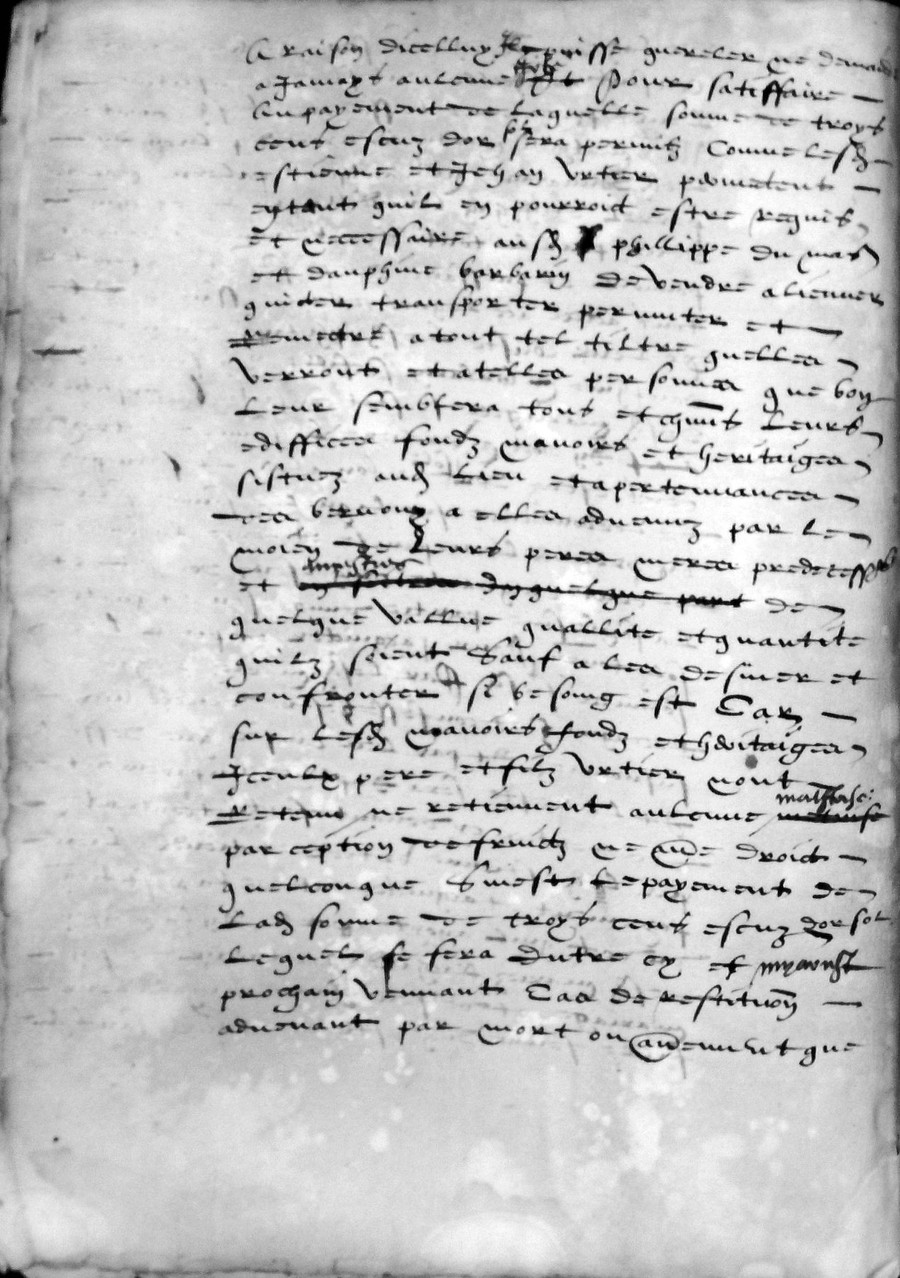 A raison dicelluy Ilz puisse quereler ne demande
a Jamays aulcune Pour satiffaire
Au payement de Laquelle somme de troys
cens escuz dor sera permis Comme lesd
estienne et Jehan Vrtier prometent
entant quil en pourroict estre requis
et neccessaire ausd phillippe du mas
et dauphine barbarin de vendre aliener
quicter transporter permuter et
Remectre a tout tel tiltre quelles
verront et a telles personnes que bon
Leur semblera tous et chuns Leurs
ediffices fondz manoirs et heritaiges
sistuez aud Lieu et apertennances
des a elles advenuz par le
moien de Leurs peres meres predecess
et de
quelque vallue quallite et quantite
quilz soient Sauf a les desiner et
confronter si besoing est Car
sur lesd manoirs fondz et heritaiges
Iceulx pere et filz Vrtier nont
Retenu ne retiennent aulcune
parception de fruictz ne droict
quelconque Sinest Le payement de
Lad somme de troys cens escuz dor sol
Lequel se fera dutre cy et myaoust
prochain Vennant Cas de restitution
advenant par mort ou aultrement que